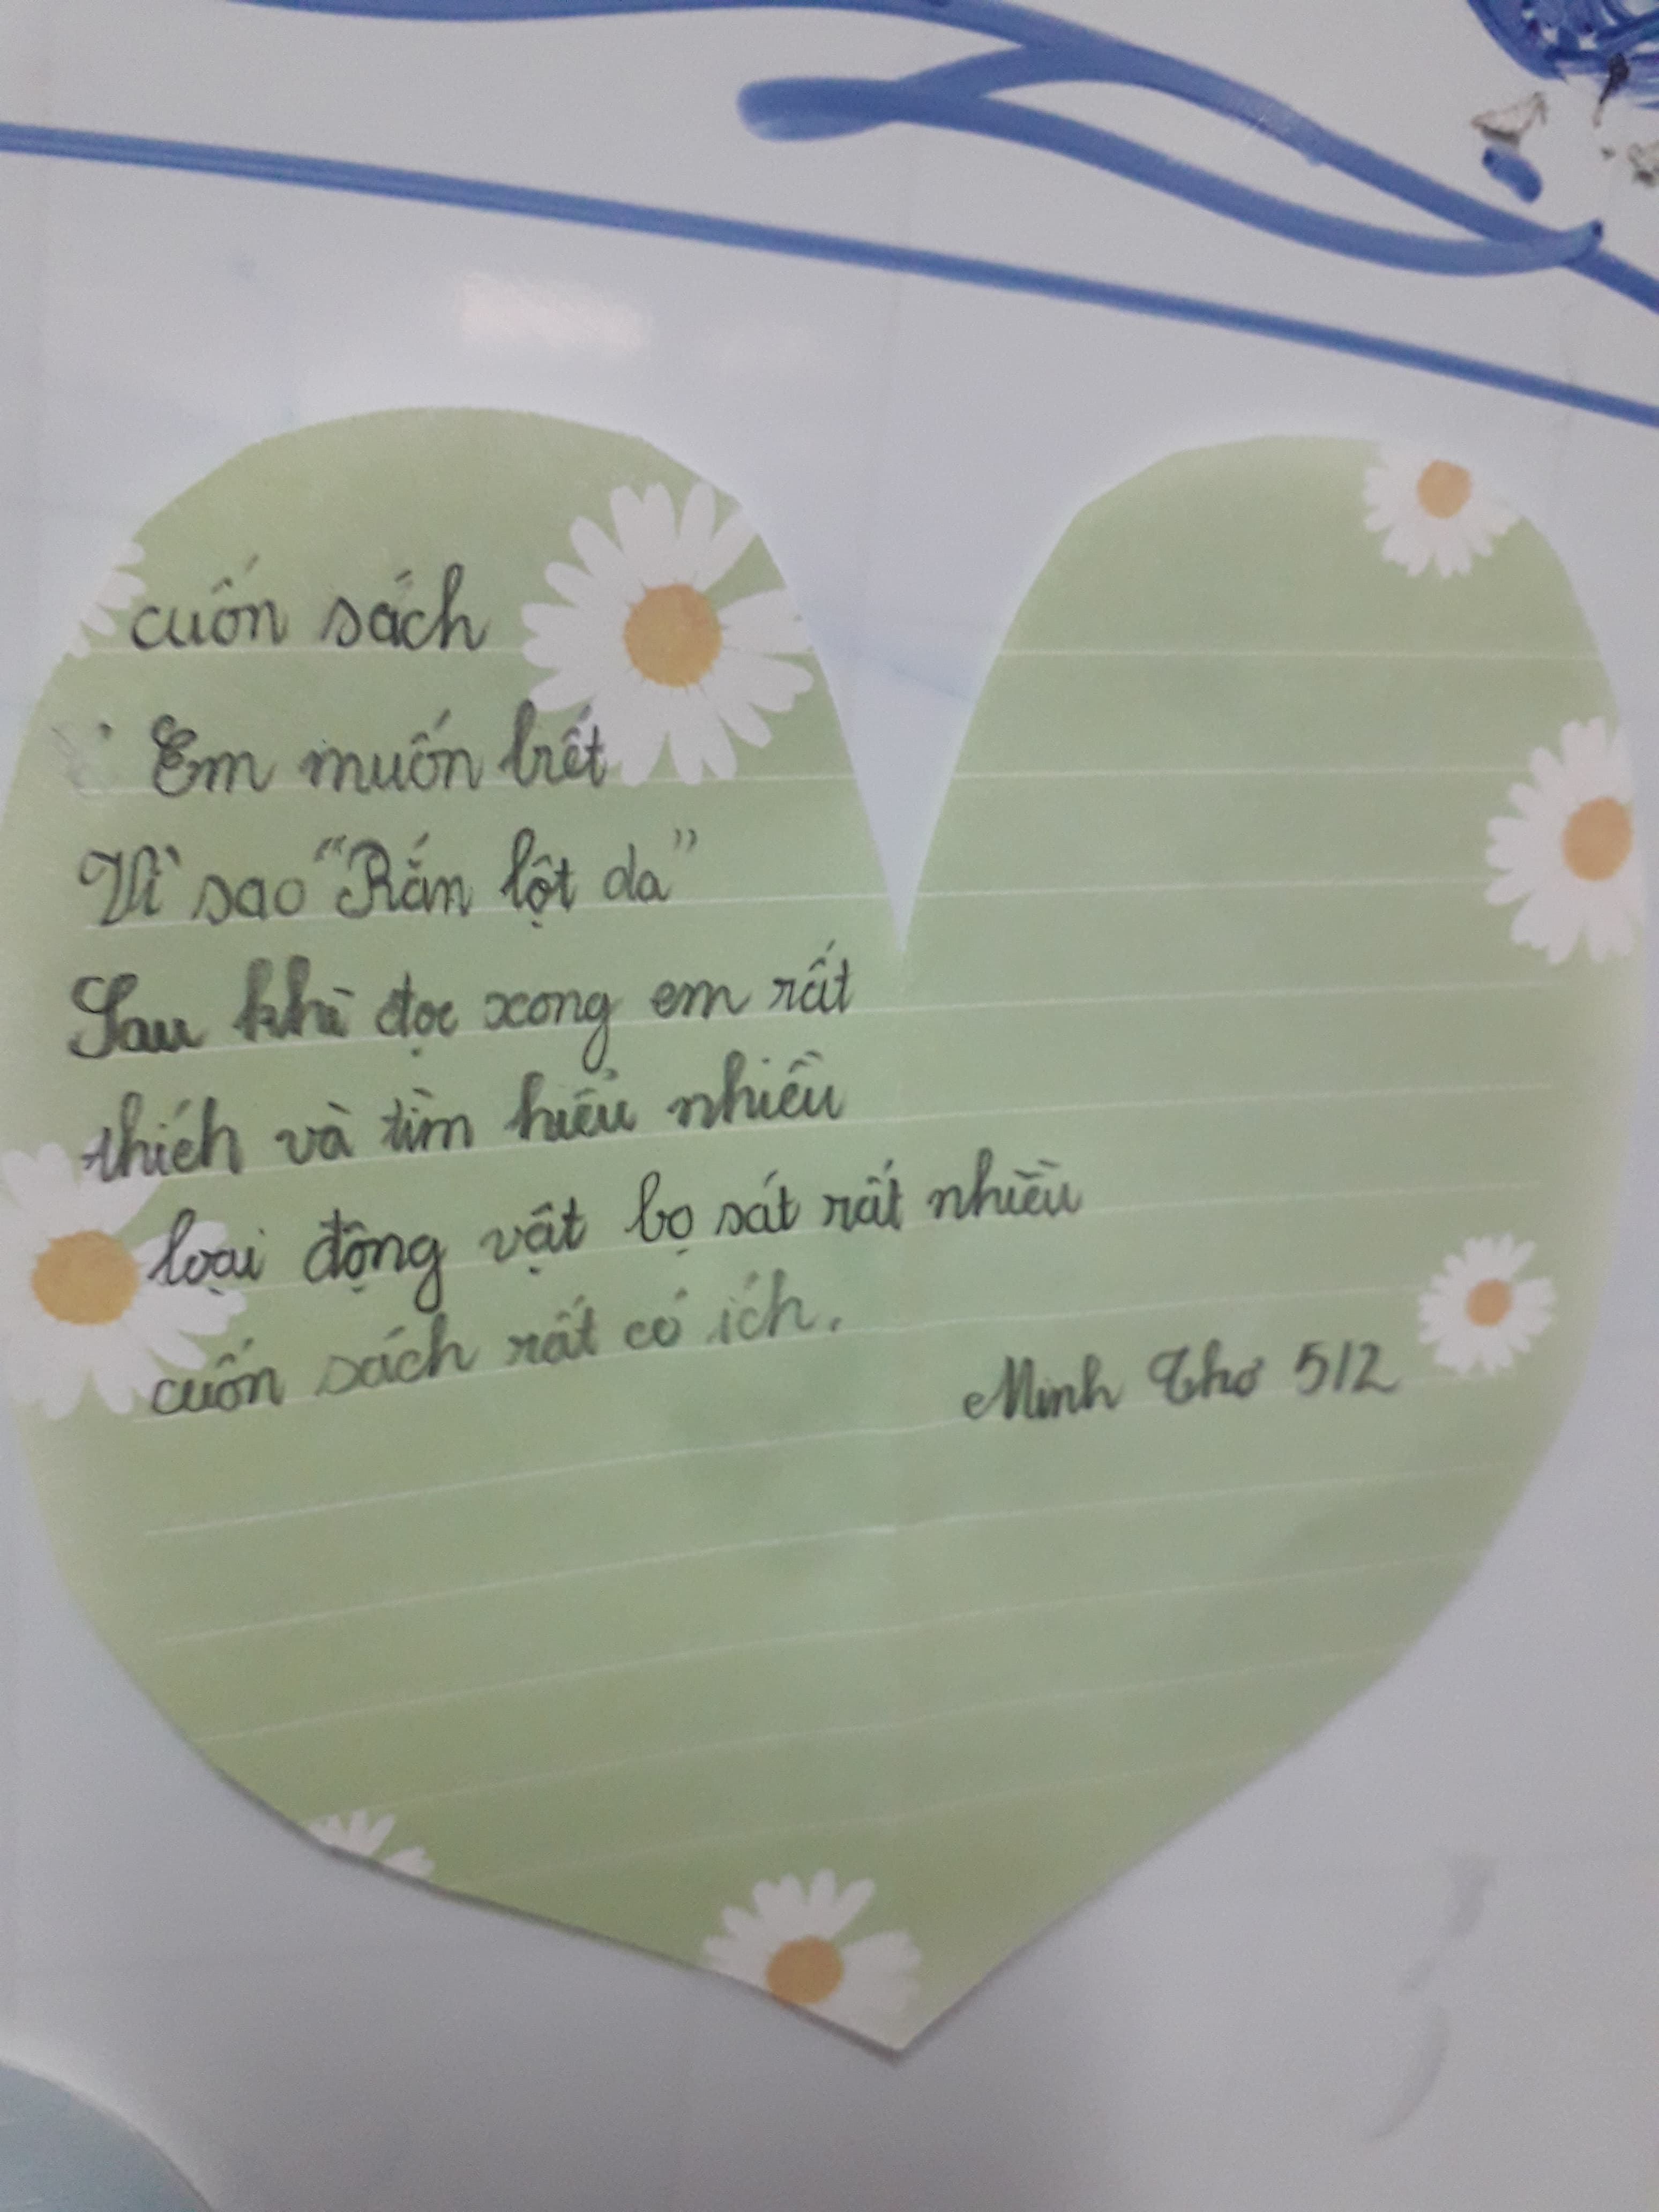 cuốn sách
Em muốn biết
Vì sao "Rắn lột da"
Sau khi đọc xong em rất
thích và tìm hiểu nhiều
loại động vật bọ sát rất nhiều
cuốn sách rất có ích.
Minh Thơ 5/2